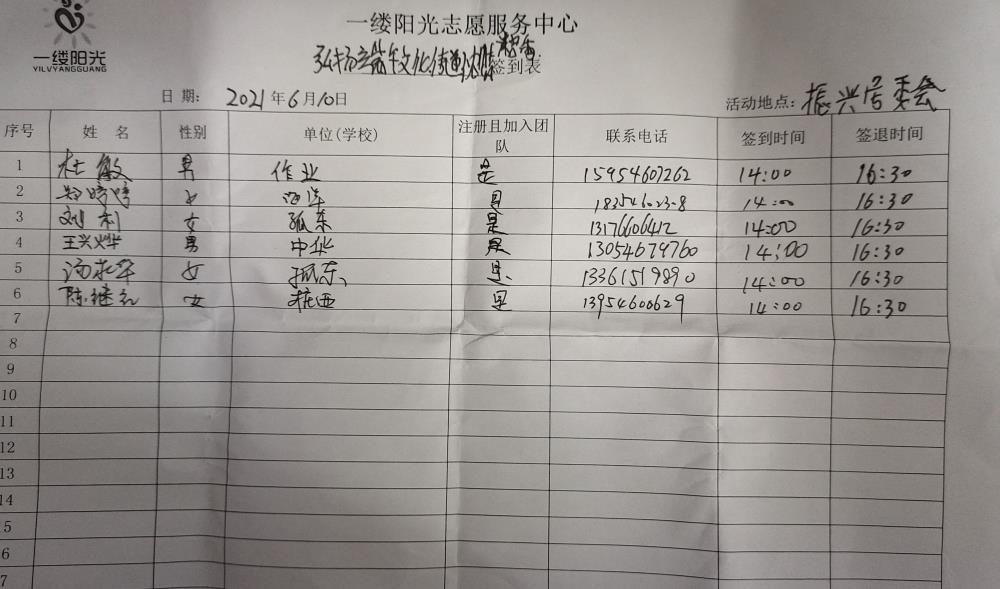 一缕阳光
YILVYANGGUANG
一缕阳光志愿服务中心
签到表
日 期: 2021年6月10日
活动地点: 振兴居委会
序号 姓 名 性别 单位(学校) 注册且加入团队 联系电话 签到时间 签退时间
1 杜敏 男 作业 是 15954607262 14:00 16:30
2 女 是 14:00 16:30
3 刘利 女 孤东 是 13176606412 14:00 16:30
4 王兴烨 男 中华 是 13054679760 14:00 16:30
5 女 孤东 是 13361519890 14:00 16:30
6 陈继 女 桩西 是 13954600629 14:00 16:30
7
8
9
10
11
12
13
14
5
6
7